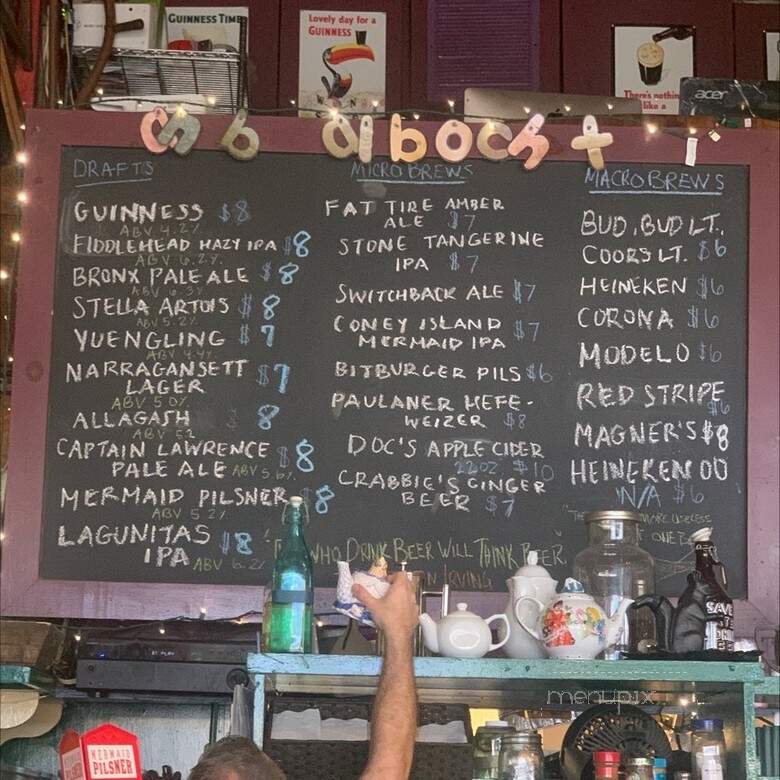 GUINNESS TIME
Lovely day for a
GUINNESS
There's nothin
like a
acer
DRAFTS
GUINNESS $8
ABV 4.2%
FIDDLEHEAD HAZY IPA $8
ABV 6.2%
BRONX PALE ALE $8
ABV 6.3%
STELLA ARTOIS $8
ABV 5.2%
YUENGLING $7
ABV 4.4%
NARRAGANSETT
LAGER $7
ABV 5.0%
ALLAGASH $8
ABV 5.2
CAPTAIN LAWRENCE
PALE ALE ABV 5.6% $8
MERMAID PILSNER $8
ABV 5.2%
LAGUNITAS
IPA ABV 6.2% $8
MICRO BREWS
FAT TIRE AMBER
ALE $7
STONE TANGERINE
IPA $7
SWITCHBACK ALE $7
CONEY ISLAND
MERMAID IPA $7
BITBURGER PILS $6
PAULANER HEFE-
WEIZER $8
DOC'S APPLE CIDER
22OZ. $10
CRABBIE'S GINGER
BEER $7
MACRO BREWS
BUD, BUD LT.,
COORS LT. $6
HEINEKEN $6
CORONA $6
MODELO $6
RED STRIPE
$6
MAGNER'S $8
HEINEKEN 00
N/A $6
WHO DRINK BEER WILL THINK BEER"
IRVING
MORE USELESS
MERMAID
PILSNER
SAVE
menupix